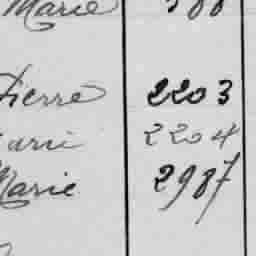 Marie
Pierre 2203
arie 2204
Marie 2987